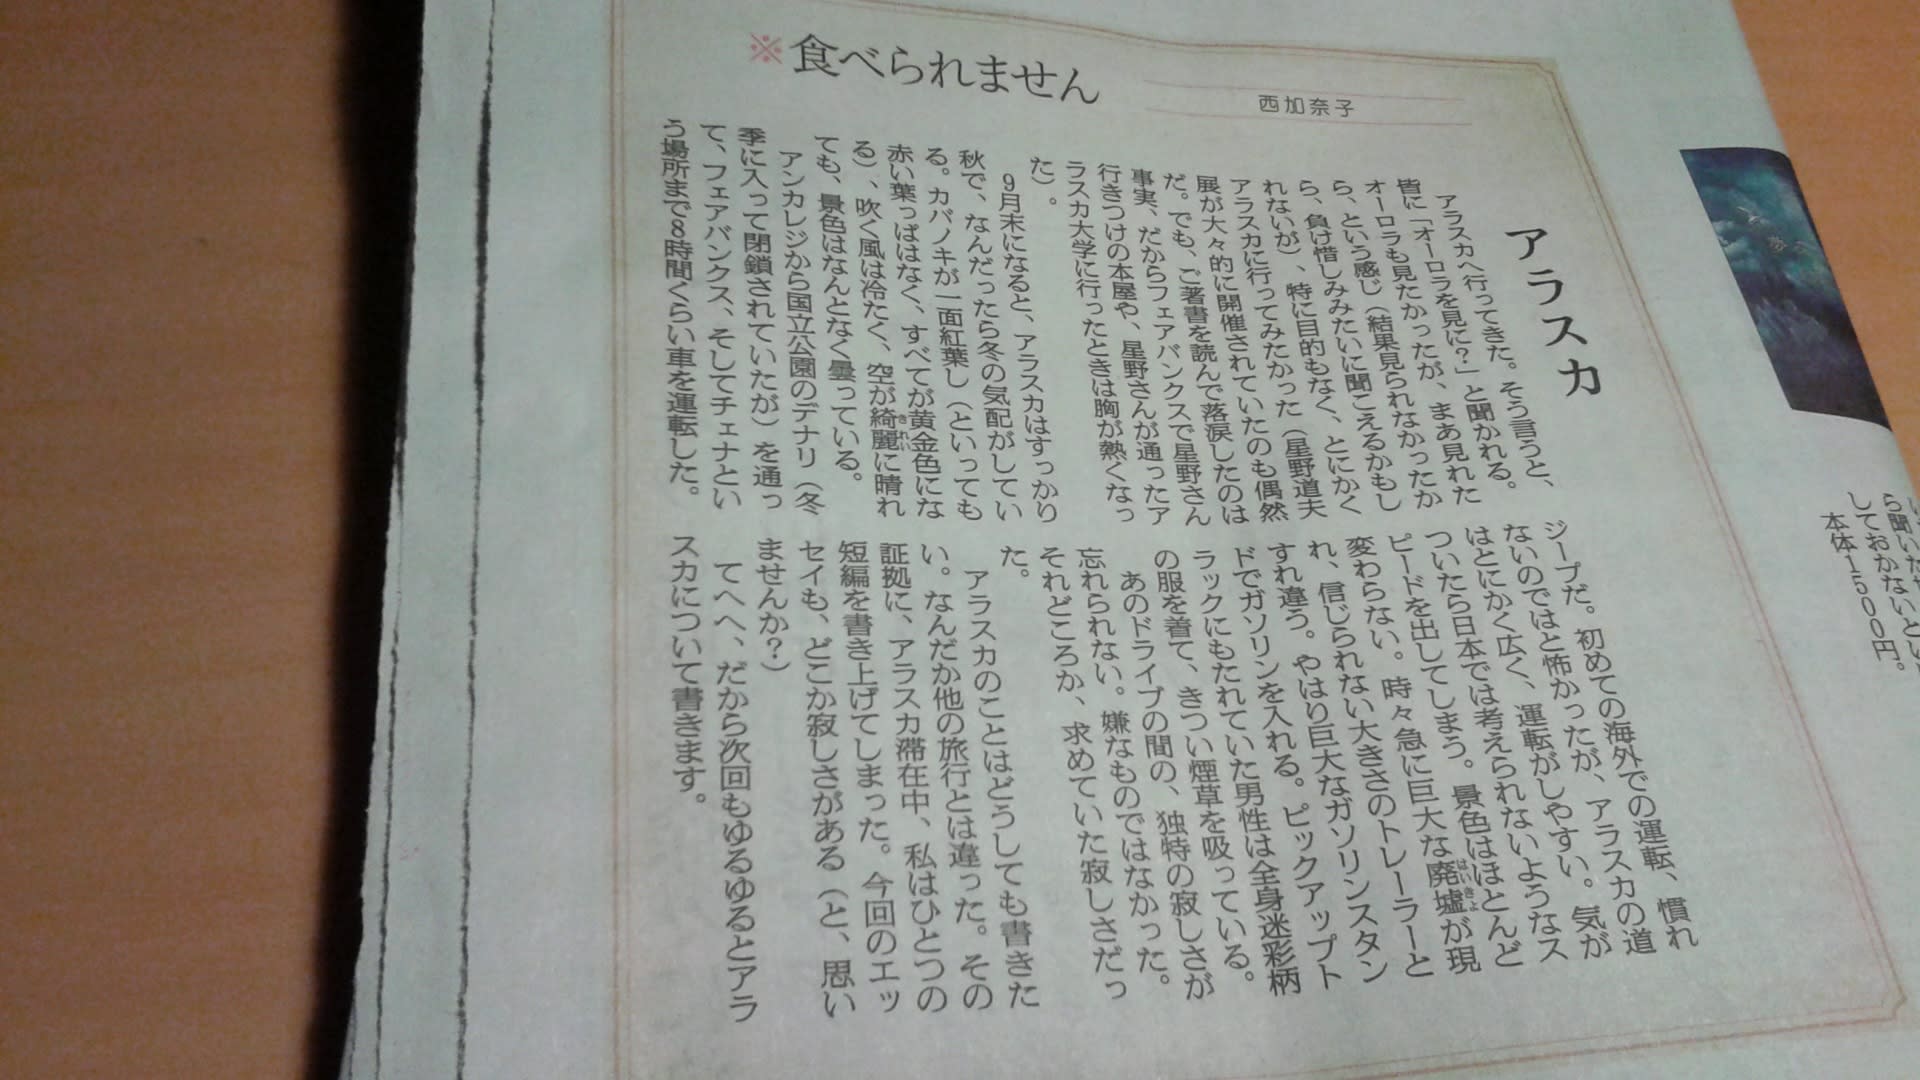 ※食べられません
西加奈子
アラスカ
アラスカへ行ってきた。そう言うと、
皆に「オーロラを見に?」と聞かれる。
オーロラも見たかったが、まあ見れた
ら、という感じ(結果見られなかったか
ら、負け惜しみみたいに聞こえるかもし
れないが)、特に目的もなく、とにかく
アラスカに行ってみたかった(星野道夫
展が大々的に開催されていたのも偶然
だ。でも、ご著書を読んで落涙したのは
事実、だからフェアバンクスで星野さん
行きつけの本屋や、星野さんが通ったア
ラスカ大学に行ったときは胸が熱くなっ
た)。
9月末になると、アラスカはすっかり
秋で、なんだったら冬の気配がしてい
る。カバノキが一面紅葉し(といっても
赤い葉っぱはなく、すべてが黄金色にな
る)、吹く風は冷たく、空が綺麗に晴れ
ても、景色はなんとなく曇っている。
アンカレジから国立公園のデナリ(冬
季に入って閉鎖されていたが)を通っ
て、フェアバンクス、そしてチェナとい
う場所まで8時間くらい車を運転した。
ジープだ。初めての海外での運転、慣れ
ないのではと怖かったが、アラスカの道
はとにかく広く、運転がしやすい。気が
ついたら日本では考えられないようなス
ピードを出してしまう。景色はほとんど
変わらない。時々急に巨大な廃墟が現
れ、信じられない大きさのトレーラーと
すれ違う。やはり巨大なガソリンスタン
ドでガソリンを入れる。ピックアップト
ラックにもたれていた男性は全身迷彩柄
の服を着て、きつい煙草を吸っている。
あのドライブの間の、独特の寂しさが
忘れられない。嫌なものではなかった。
それどころか、求めていた寂しさだっ
た。
アラスカのことはどうしても書きた
い。なんだか他の旅行とは違った。その
証拠に、アラスカ滞在中、私はひとつの
短編を書き上げてしまった。今回のエッ
セイも、どこか寂しさがある(と、思い
ませんか?)
てへへ、だから次回もゆるゆるとアラ
スカについて書きます。
しておかないと
本体1500円。